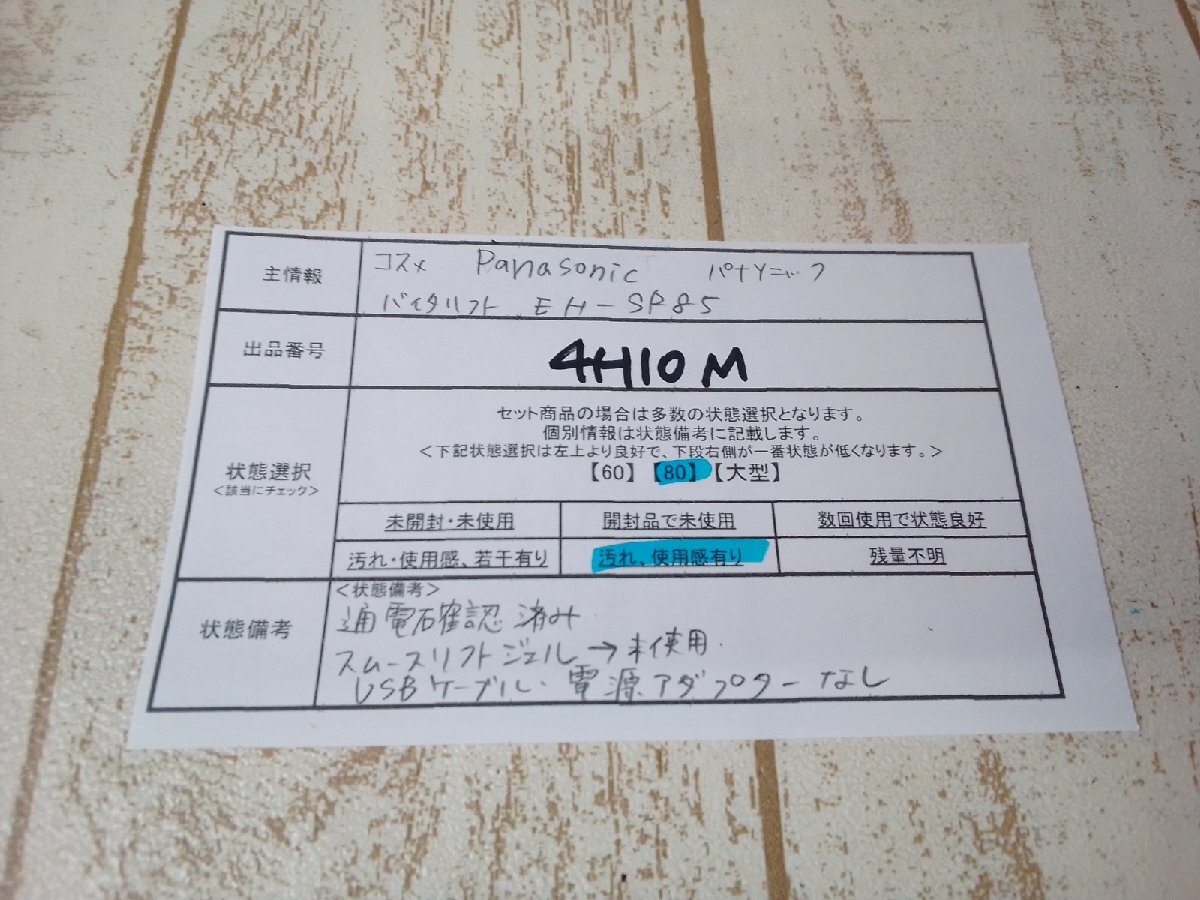 主情報
コスメ Panasonic パナソニック
バイタリフト EH-SP85
出品番号
4H10M
状態選択
<該当にチェック>
セット商品の場合は多数の状態選択となります。
個別情報は状態備考に記載します。
<下記状態選択は左上より良好で、下段右側が一番状態が低くなります。>
【60】【80】【大型】
未開封・未使用 開封品で未使用 数回使用で状態良好
汚れ・使用感、若干有り 汚れ、使用感有り 残量不明
状態備考
<状態備考>
通電確認済み
スムースリフトジェル→未使用
USBケーブル・電源アダプターなし